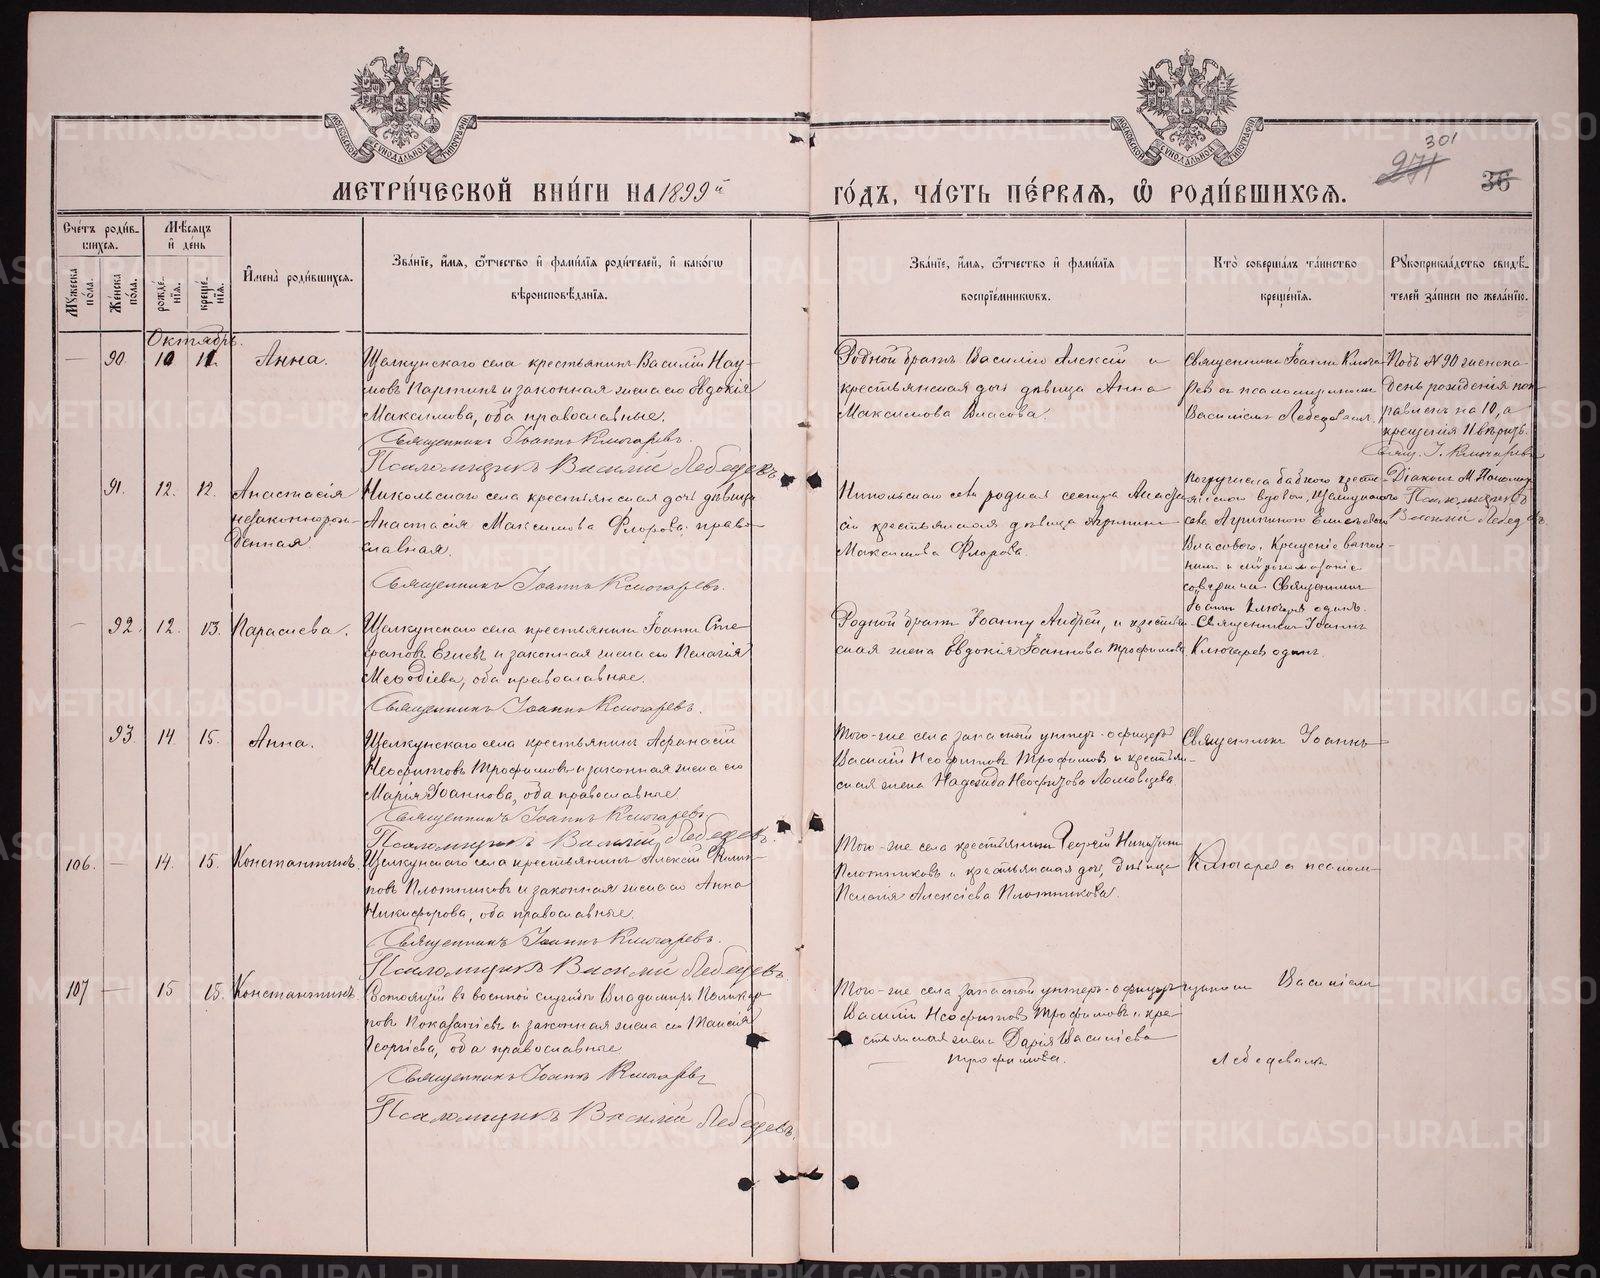 МОСКОВСКОЙ СѴНОДАЛЬНОЙ ТИПОГРАФІИ
МОСКОВСКОЙ СѴНОДАЛЬНОЙ ТИПОГРАФІИ
301
271
36
МЕТРИ́ЧЕСКОЙ КНИ́ГИ НА 1899й
ГО́ДЪ, ЧА́СТЬ ПЕ́РВАЯ, Ѡ РОДИ́ВШИХСЯ.
Сче́тъ роди́вшихся.
Мꙋжеска по́ла.
Же́нска по́ла.
Мѣ́сяцъ и де́нь
рожде́нїя.
креще́нїя.
И҆мена̀ роди́вшихся.
Зва́нїе, и҆́мя, ѻ҆́тчество и҆ фами́лїя роди́телей, и҆ како́гѡ
вѣроисповѣ́данїя.
Зва́нїе, и҆́мя, ѻ҆́тчество и҆ фами́лїя
воспрїе́мникѡвъ.
Кто̀ соверша́лъ та́инство
креще́нїя.
Рꙋкоприкла́дство свидѣ́телей за́писи по жела́нїю.
Октябрь.
— 90 10 11. Анна.
Щелкунскаго села крестьянинъ Василій Нау-
мовъ Партинъ и законная жена его Евдокія
Максимова, оба православные.
Священникъ Іоаннъ Ключаревъ.
Псаломщикъ Василій Лебедевъ
Родной братъ Василію Алексій и
крестьянская дочь дѣвица Анна
Максимова Власова.
Священникъ Іоаннъ Ключа-
ревъ съ псаломщикомъ
Василіемъ Лебедевымъ.
Подъ N 90 женска
день рожденія поп-
равленъ на 10, а
крещенія 11 вѣрить.
Свящ. І. Ключаревъ
91. 12. 12. Анастасія
незаконнорож-
денная.
Никольскаго села крестьянская дочь дѣвица
Анастасія Максимова Флорова, право-
славная.
Священникъ Іоаннъ Ключаревъ.
Никольскаго села родная сестра Анаста-
сіи крестьянская дѣвица
Максимова Флорова.
Погружена бабкою кресть-
янской вдовой, Щелкунскаго
села Агрипиною
Власовою. Крещеніе
совершилъ Священникъ
Іоаннъ Ключаревъ одинъ.
Діаконъ М.
Псаломщикъ
Василій Лебедевъ.
— 92. 12. 13. Параскева.
Щелкунскаго села крестьянинъ Іоаннъ Сте-
фановъ и законная жена его Пелагія
Меѳодіева, оба православные.
Священникъ Іоаннъ Ключаревъ.
Родной братъ Іоанну Андрей, и крестьян-
ская жена Евдокія Іоаннова Трофимова.
Священникъ Іоаннъ
Ключаревъ одинъ.
93. 14. 15. Анна.
Щелкунскаго села крестьянинъ Аѳанасій
Неофитовъ Трофимовъ и законная жена его
Марія Іоаннова, оба православные
Священникъ Іоаннъ Ключаревъ
Псаломщикъ Василій Лебедевъ.
Того-же села запасный унтеръ-офицеръ
Василій Неофитовъ Трофимовъ и крестьян-
ская жена Надежда Неофитова Ломовцева
Священникъ Іоаннъ
106. — 14. 15. Константинъ.
Щелкунскаго села крестьянинъ Алексій Филип-
повъ Плотниковъ и законная жена его Анна
Никифорова, оба православные.
Священникъ Іоаннъ Ключаревъ.
Псаломщикъ Василій Лебедевъ
Того-же села крестьянинъ Георгій
Плотниковъ и крестьянская дочь, дѣвица
Пелагія Алексіева Плотникова.
Ключаревъ съ псалом-
107 — 15 15. Константинъ.
Состоящій въ военной службѣ Владимиръ Поликар-
повъ и законная жена его Таисія
Георгіева, оба православные
Священникъ Іоаннъ Ключаревъ
Псаломщикъ Василій Лебедевъ.
Того-же села запасный унтеръ-офицеръ
Василій Неофитовъ Трофимовъ и кре-
стьянская жена Дарія Василіева
Трофимова.
щикомъ Василіемъ
Лебедевымъ
METRIKI.GASO-URAL.RU